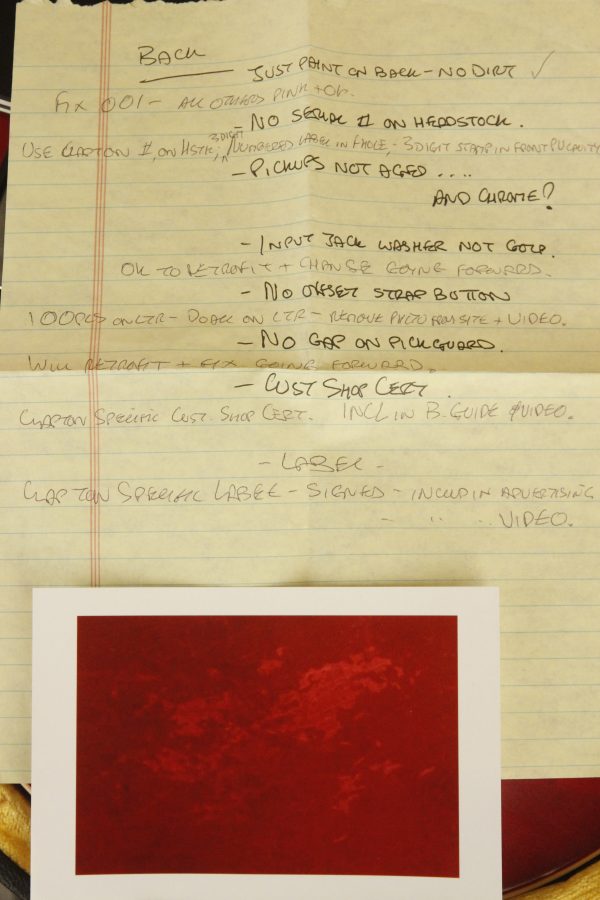 BACK
JUST PAINT ON BACK - NO DIRT ✓
FIX 001 - ALL OTHERS PINK + OK.
- NO SERIAL # ON HEADSTOCK.
3 DIGIT
USE CLAPTON #, ON HSTK, NUMBERED LABEL IN FHOLE, - 3 DIGIT STAMP IN FRONT PU CAVITY
- PICKUPS NOT AGED ....
AND CHROME?
- INPUT JACK WASHER NOT GOLD.
OK TO RETROFIT + CHANGE GOING FORWARD.
- NO OFFSET STRAP BUTTON
100 PCS ON CTR - DO ALL ON CTR - REMOVE FROM SITE + VIDEO.
- NO GAP ON PICKGUARD.
WILL RETROFIT + FIX GOING FORWARD.
- CUST SHOP CERT.
CLAPTON SPECIFIC CUST. SHOP CERT. INCL IN B. GUIDE & VIDEO.
- LABEL -
CLAPTON SPECIFIC LABEL - SIGNED - INCLUD IN ADVERTISING
- " .. VIDEO.